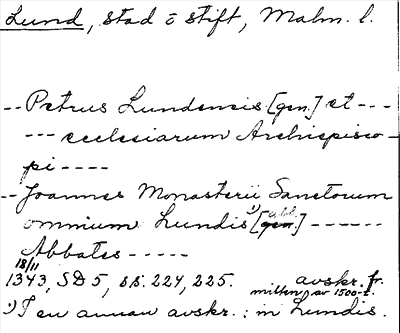 Lund, stad o stift, Malm. l.
-- Petrus Lundensis [gen.] et ---
--- ecclesiarum Archiepisco-
pi ----
-- Joannes Monasterii Sanctorum
omnium Lundis ¹) [gen.] ------
abl.
Abbates -----
18/11
1343, SD 5, s.s. 224, 225. avskr. fr.
mitten av 1500-t.
¹) I en annan avskr.: in Lundis.